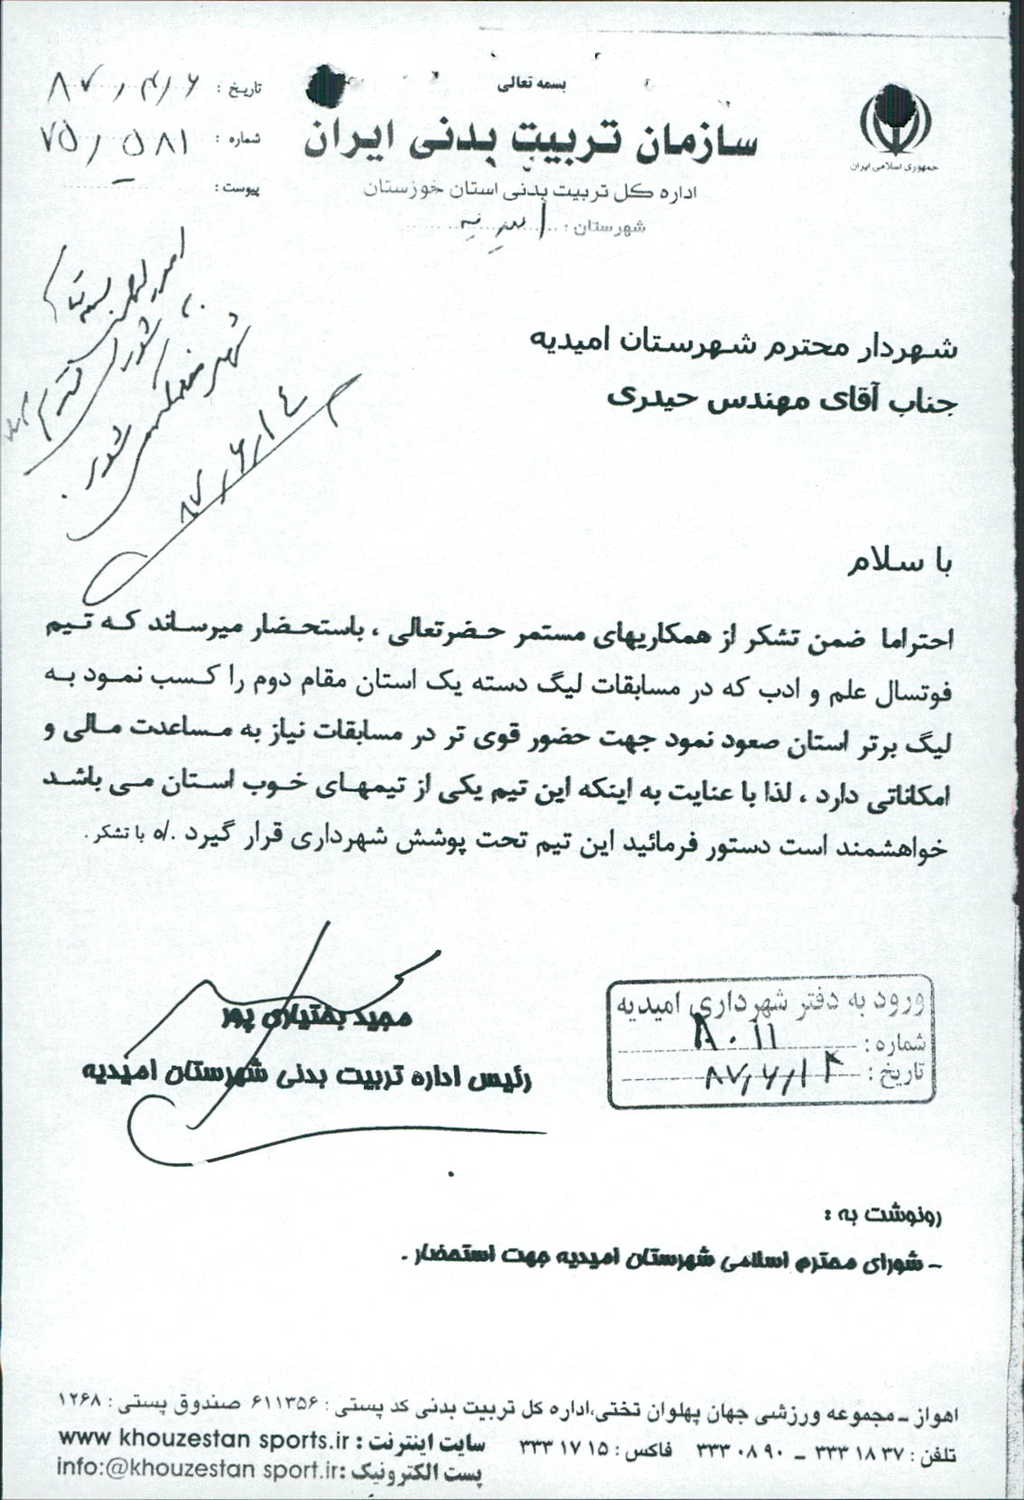 بسمه تعالی
سازمان تربیت بدنی ایران
اداره کل تربیت بدنی استان خوزستان
شهرستان : امیدیه
جمهوری اسلامی ایران
تاریخ :
شماره : ۷۵/۵۸۱
پیوست :
بسمه تعالی
به شورای
شود .
۸۷/۶/۱۴
شهردار محترم شهرستان امیدیه
جناب آقای مهندس حیدری
با سلام
احتراما ضمن تشکر از همکاریهای مستمر حضرتعالی ، باستحضار میرساند که تیم
فوتسال علم و ادب که در مسابقات لیگ دسته یک استان مقام دوم را کسب نمود به
لیگ برتر استان صعود نمود جهت حضور قوی تر در مسابقات نیاز به مساعدت مالی و
امکاناتی دارد ، لذا با عنایت به اینکه این تیم یکی از تیمهای خوب استان می باشد
خواهشمند است دستور فرمائید این تیم تحت پوشش شهرداری قرار گیرد ./ه با تشکر .
مجید بختیاری پور
رئیس اداره تربیت بدنی شهرستان امیدیه
ورود به دفتر شهرداری امیدیه
شماره : ۸۰۱۱
تاریخ : ۸۷/۶/۱۴
رونوشت به :
- شورای محترم اسلامی شهرستان امیدیه جهت استحضار .
اهواز ـ مجموعه ورزشی جهان پهلوان تختی،اداره کل تربیت بدنی کد پستی : ۶۱۱۳۵۶ صندوق پستی : ۱۲۶۸
تلفن : ۳۳۳۱۸۳۷ ـ ۳۳۳۰۸۹۰ فاکس : ۳۳۳۱۷۱۵ سایت اینترنت : www khouzestan sports.ir
پست الکترونیک :info:@khouzestan sport.ir